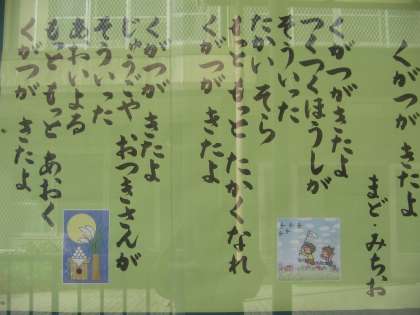 くがつが きたよ
まど・みちお
くがつがきたよ
つくつくほうしが
そういった
たかい そら
もっと もっと たかくなれ
くがつが きたよ
くがつが きたよ
じゅうごや おつきさんが
そういった
あおいよる
もっと もっと あおく
くがつが きたよ